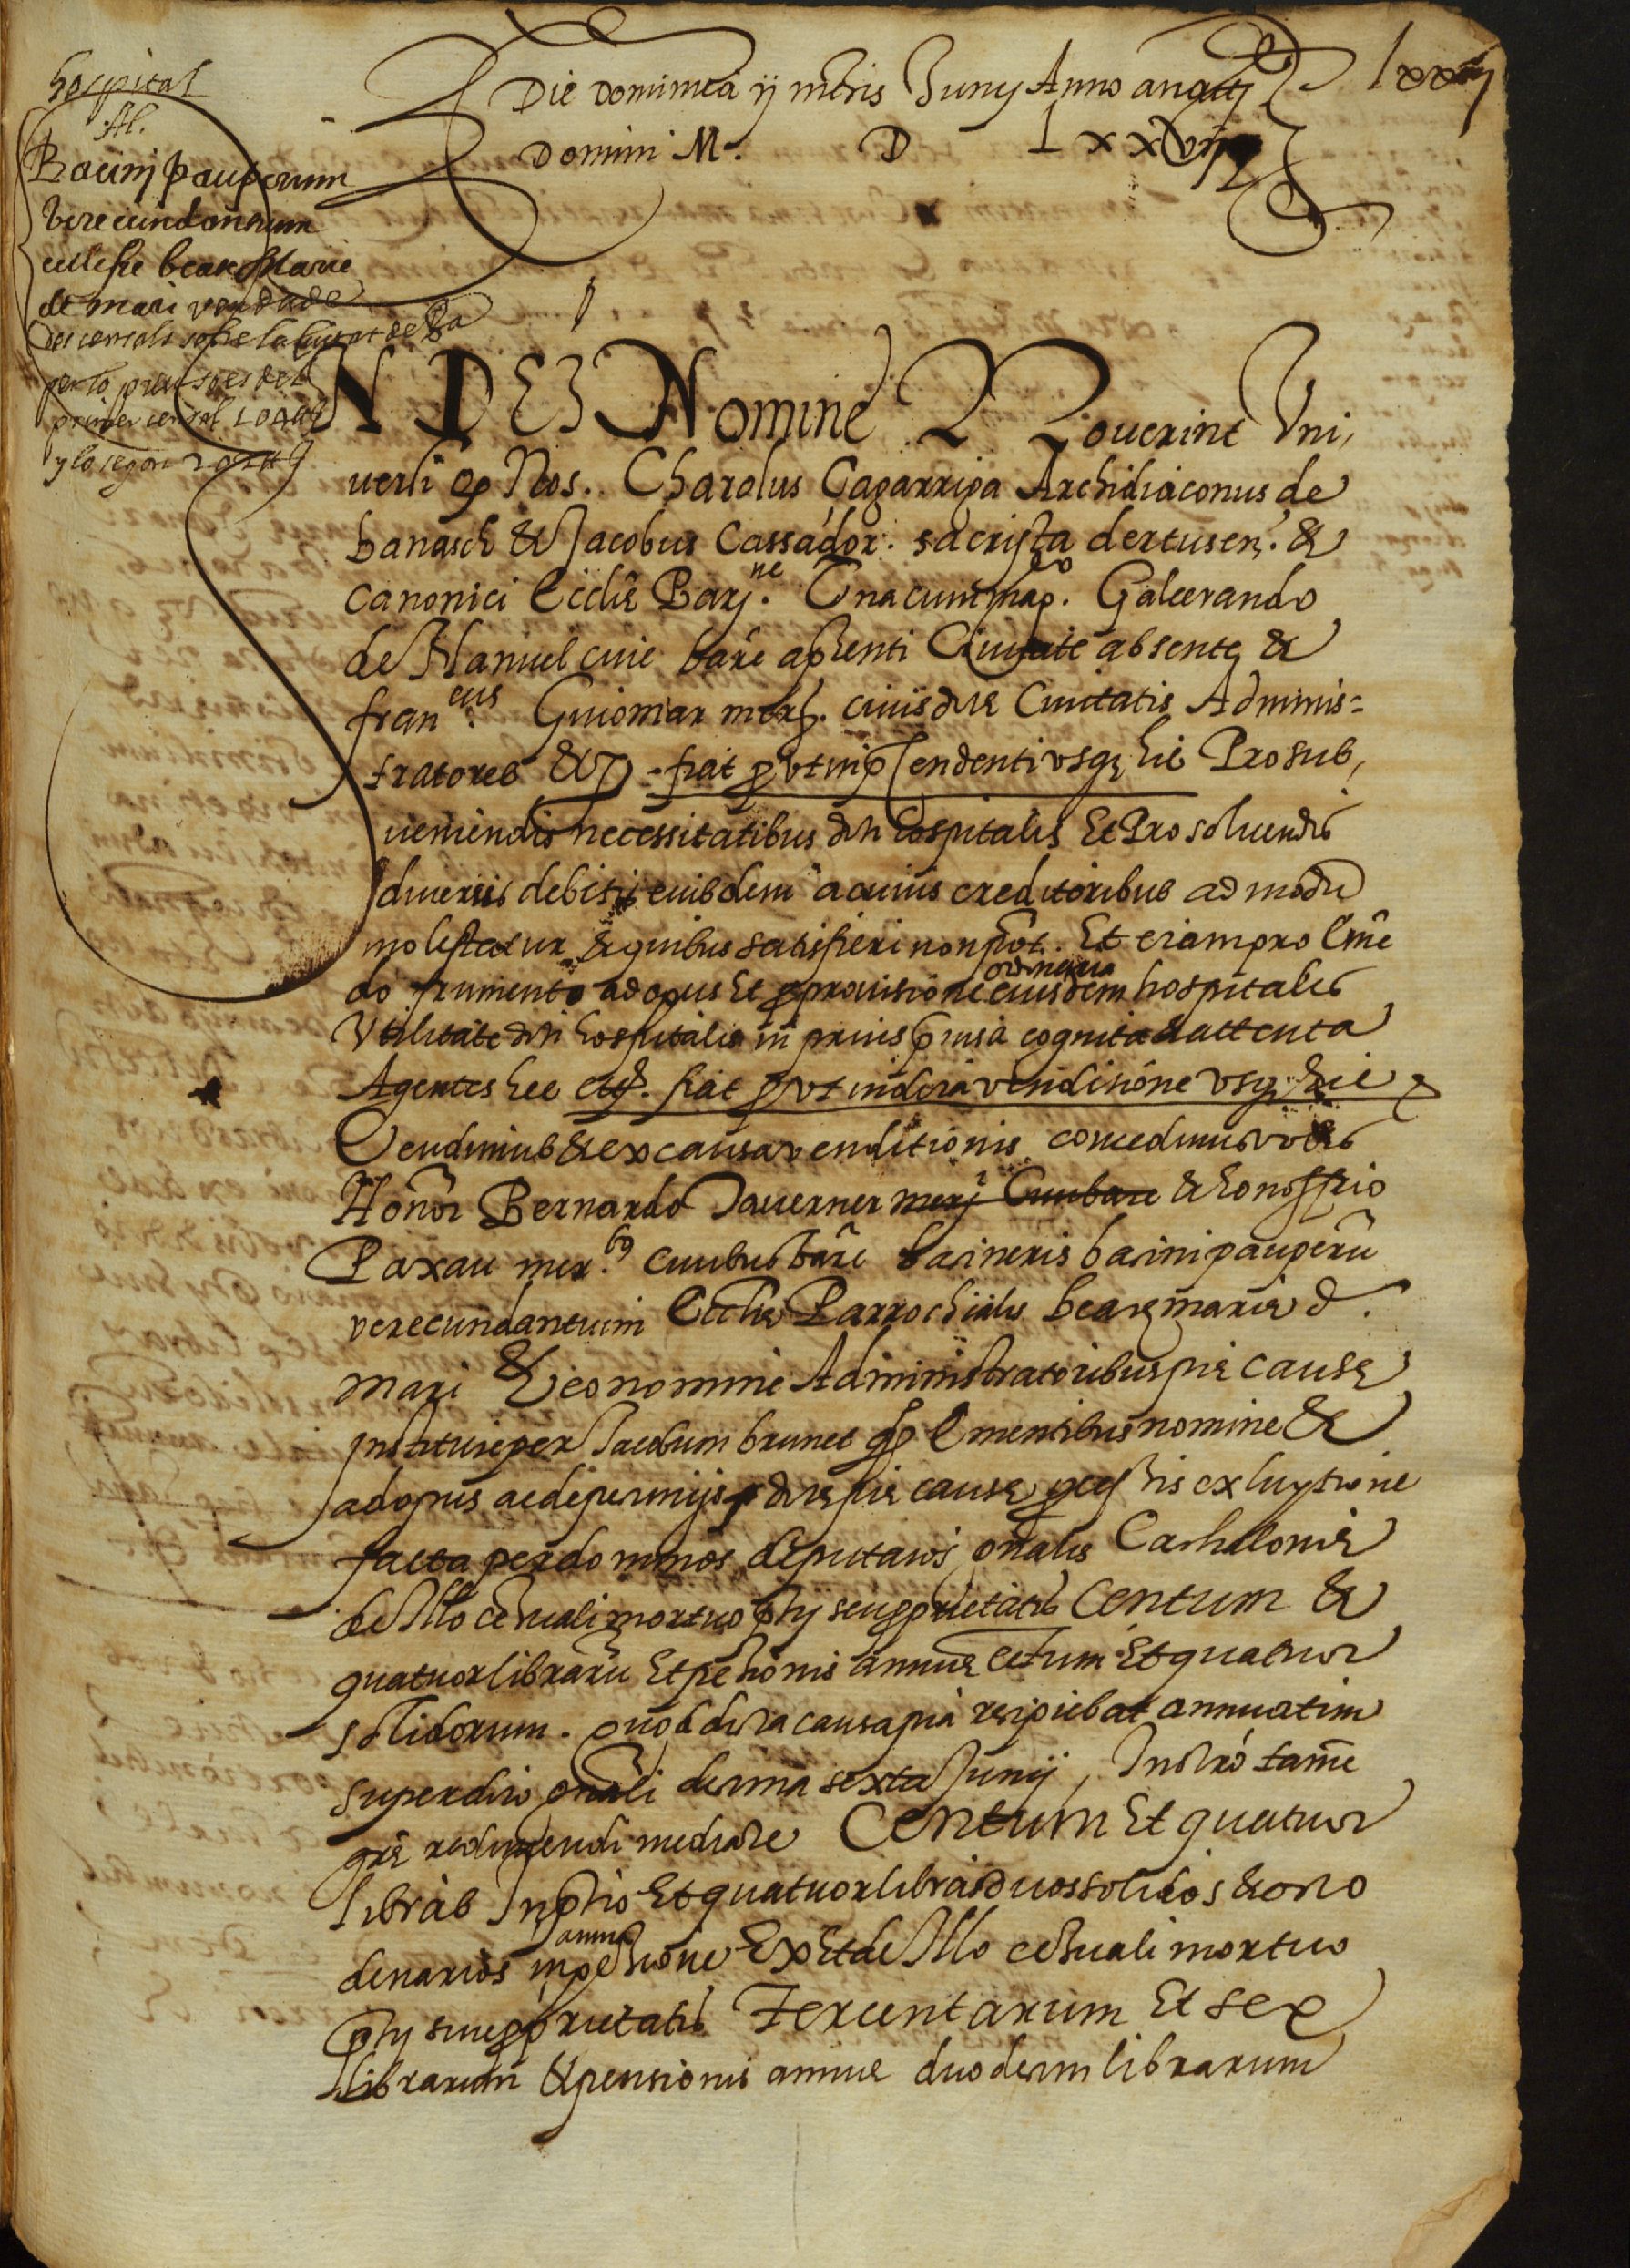 lxxiij
Die dominica ij mensis Junij Anno a natte
Domini M. D Lxxviij
hospital
Al.
Bacinj pauperum
verecundantium
ecclesie beate Marie
de mari venda de
dos censals sobre la ciutat de Ba
per lo preu ço es del
primer censal 104 ll
y lo segon
IN DEI Nomine Noverint Uni,
versi q Nos. Charolus Çagarriga Archidiaconus de
banasch & Jacobus Cassador. sacrista dertusen. &
Canonici Ecclie Barj.ne Una cum mag.co Galcerando
de Nanuel cive barñe a pñti Civitate absente &
fran.cus Guiomar merç. civis dicte Civitatis Adminis=
tratores &c fiat prout in precedenti usq hic Pro sub,
veniendis necessitatibus dicti hospitalis Et Pro solvendis
diversis debitis eiusdem a cuius creditoribus ad modũ
molestatur & quibus satisfieri non põt. Et etiam pro eme
do frumento ad opus Et provisione ordinaria eiusdem hospitalis
Utilitate dicti hospitalis in primis pensa cognita & attenta
Agentes hec etc. fiat prout in dicta venditione usq hic
Vendimus & ex causa venditionis concedimus vobis
Honor Bernardo Taverner merj Civi barñe & honoffrio
Paxau mer.bq civibus barñe bacineris bacini pauperũ
verecundantium Ecclie Parrochialis beate marie d.
mari & eo nomine Administratoribus pie cause
Institute per Jacobum brunet qº Ementibus nomine &
ad opus ac de pecunijs dicte pie cause processis ex luytione
facta per dominos deputatos gñalis Cathalonie
de illo cesuali mortuo ptij seu proprietatis Centum &
quatuor librarũ Et pesionis annue cetum Et quatuor
solidorum. quod dicta causa pia recipiebat annuatim
super dicto gñali decima sexta Junij, Instro tamẽ
grẽ redimendi mediate Centum Et quatuor
libras In ptio Et quatuor libras duos solidos & octo
denarios in annua pesione Ex Et de illo cesuali mortuo
ptij sive proprietatis Tercentarum Et sex
librarum & pensionis annue duodecim librarum